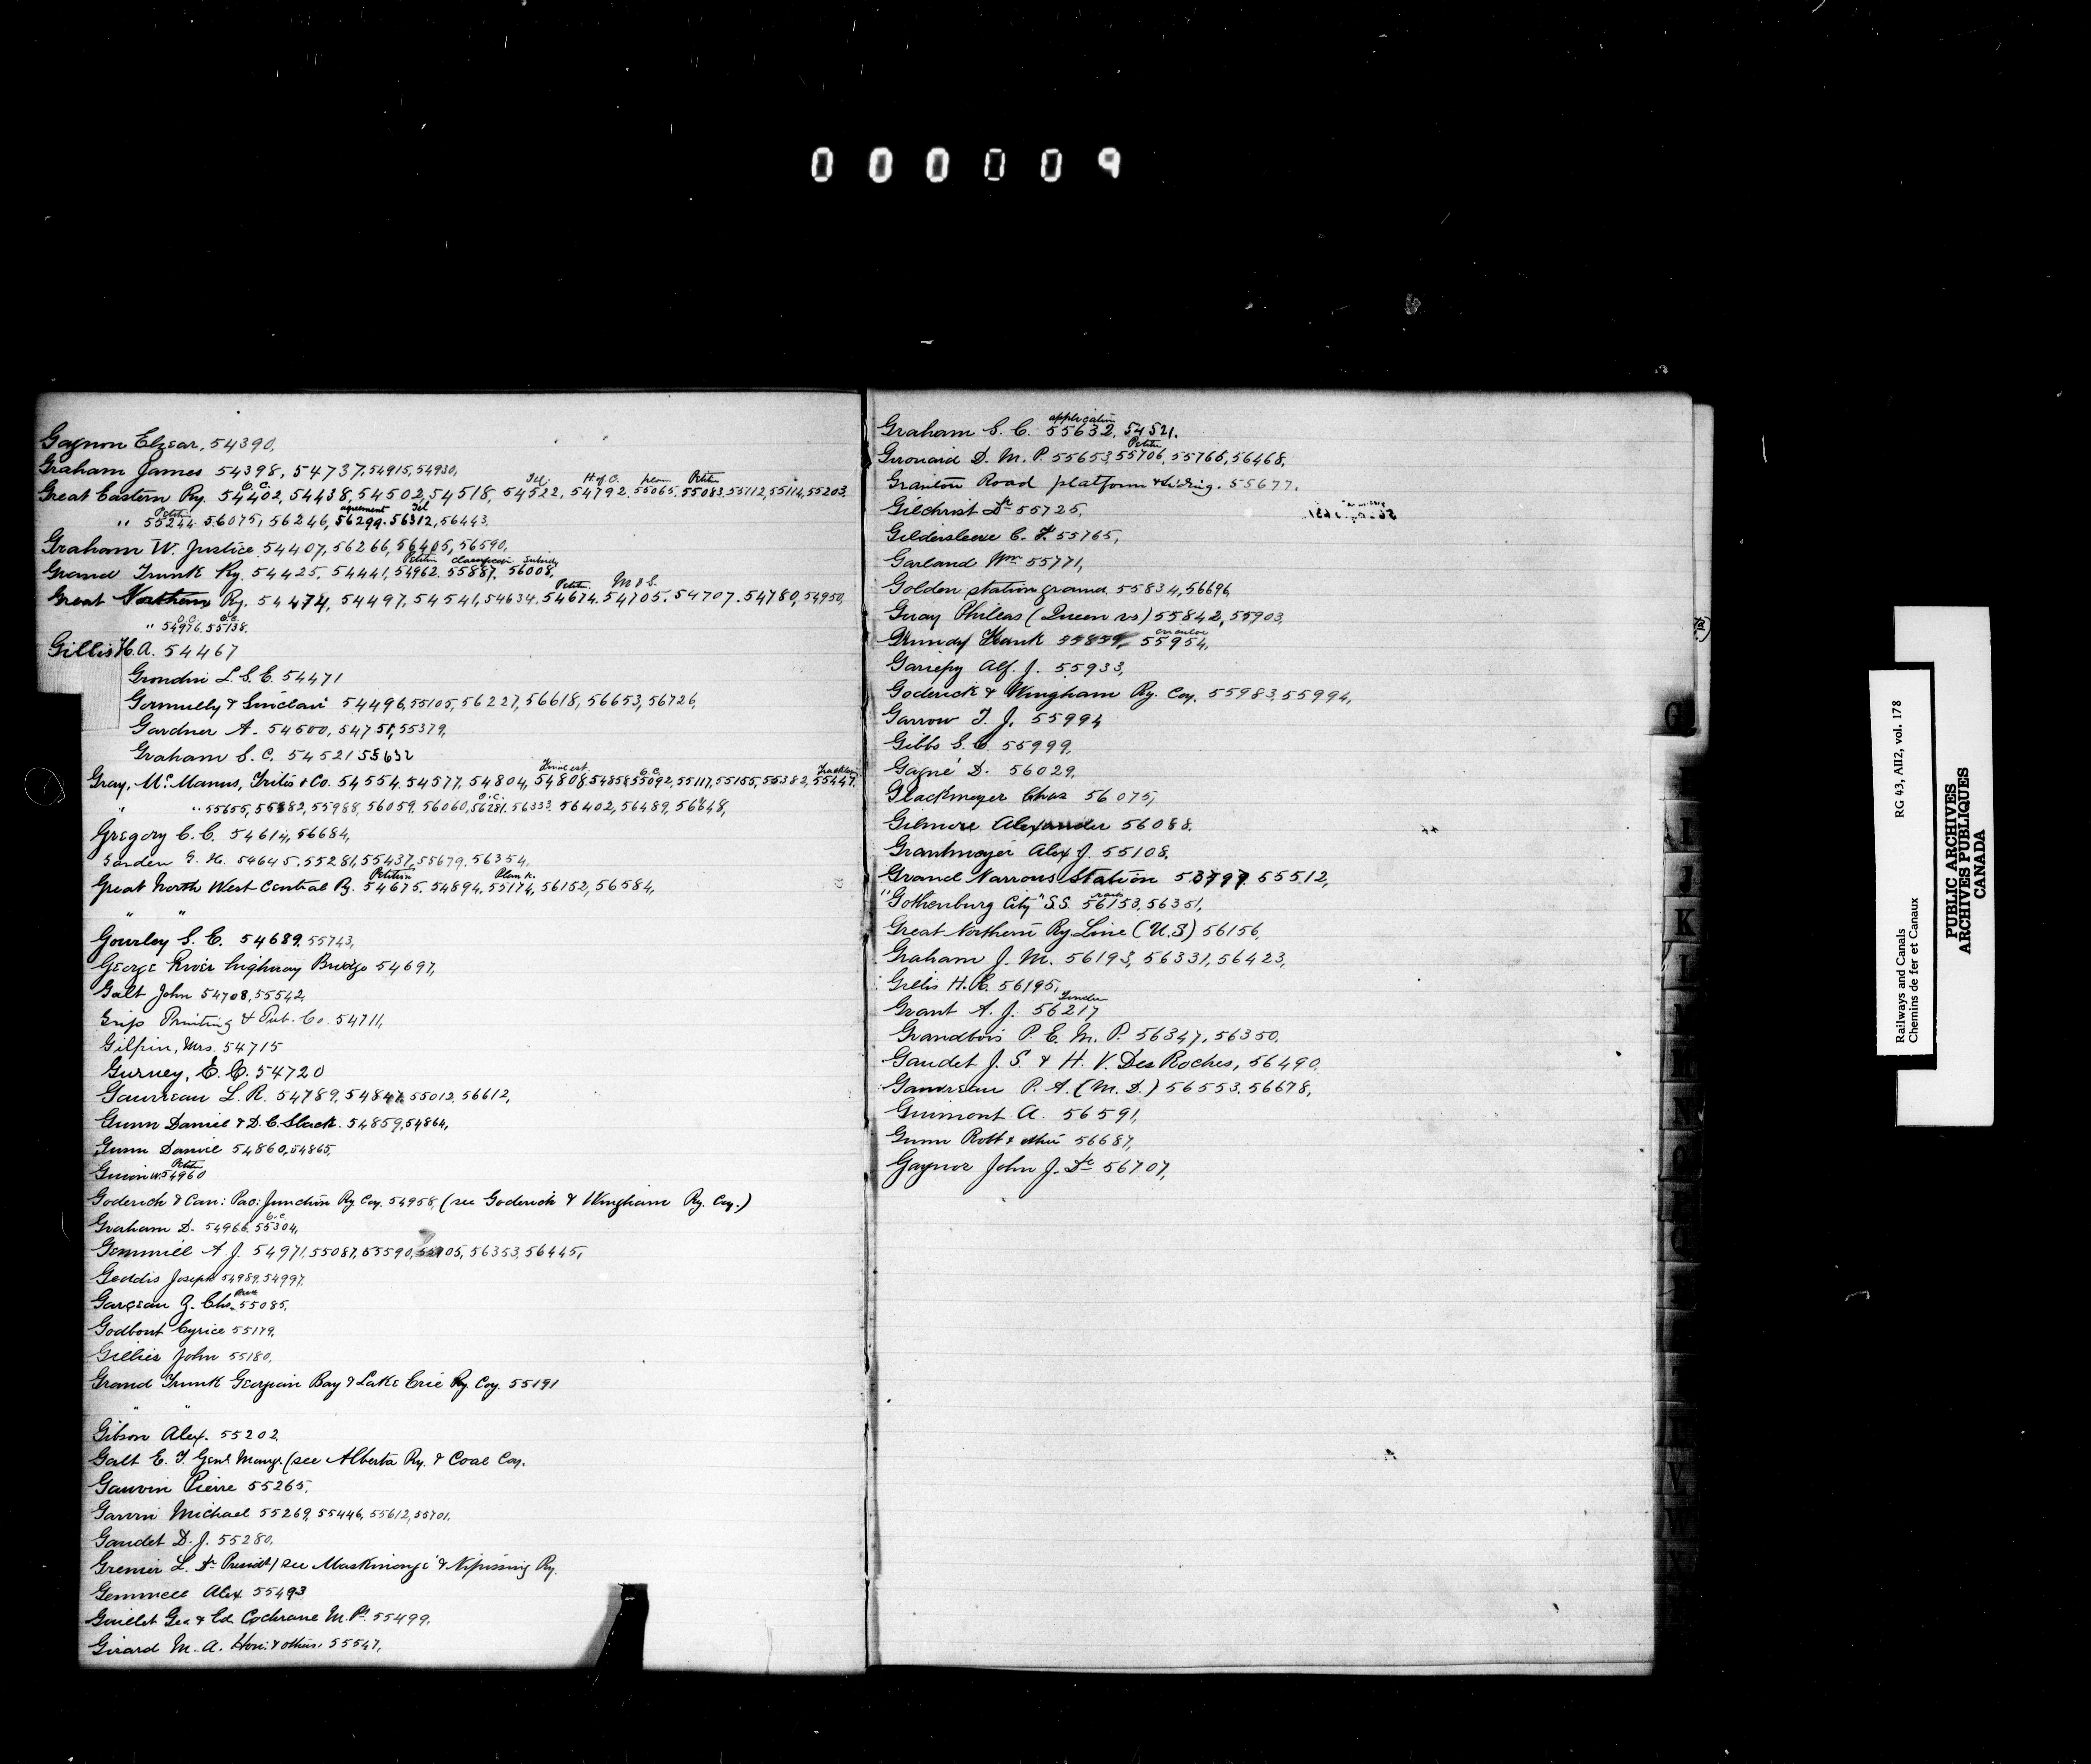 000009
Gagnon Elzear, 54390,
Graham James 54398, 54737, 54915, 54930,
Tel. H. of C. plan Petition
Great Eastern Ry. 54402, 54438, 54502, 54518, 54522, 54792, 55065, 55083, 55112, 55114, 55203,
Petition agreement Tel
" 55244, 56075, 56246, 56299, 56312, 56443,
Graham W. Justice 54407, 56266, 56405, 56590,
Petition Subsidy
Grand Trunk Ry. 54425, 54441, 54962, 55887, 56008,
Petition
Great Northern Ry. 54474, 54497, 54541, 54634, 54674, 54705, 54707, 54780, 54950,
O.C. O.C.
" 54976, 55138,
Gillis H.A. 54467
Grondin L. S. C. 54471
Gormully & Sinclair 54496, 55105, 56227, 56618, 56653, 56726,
Gardner A. 54500, 54751, 55379,
Graham S. C. 54521 55632
Final est. O.C.
Gray, McManus, Frites & Co. 54554, 54577, 54804, 54808, 54858, 55092, 55117, 55155, 55382, 55447,
O.C.
" " 55655, 55882, 55988, 56059, 56060, 56281, 56333, 56402, 56489, 56648,
Gregory C. C. 54614, 56684,
Garden G. H. 54645, 55281, 55437, 55679, 56354,
Petition
Great North West Central R. 54675, 54894, 55174, 56152, 56584,
" "
Gourley S. E. 54689, 55743,
George River highway Bridge 54697,
Galt John 54708, 55542,
Grip Printing & Pub. Co. 54711,
Gilpin, Mrs. 54715
Gurney, E. C. 54720
Gauvreau L. R. 54789, 54842, 55012, 56612,
Gunn Daniel & D. C. Slack. 54859, 54864,
Gunn Daniel 54860, 54865,
Petition
54960
Goderich & Can: Pac: Junction Ry Coy. 54958, (see Goderich & Wingham Ry. Coy.)
O.C.
Graham D. 54966, 55304,
Gemmill A. J. 54971, 55087, 55590, 55905, 56353, 56445,
Geddis Joseph 54989, 54997,
Garceau Z. Chs. 55085,
Godbout Cyrice 55179,
Gillies John 55180,
Grand Trunk Georgian Bay & Lake Erie Ry. Coy. 55191
" "
Gibson Alex. 55202
Galt E. T. Genl. Mangr. (see Alberta Ry. & Coal Coy.
Gauvin Pierre 55265,
Garvin Michael 55269, 55446, 55612, 55701,
Gaudet D. J. 55280,
Grenier L. Dr. Presidt) see Maskinongé & Nipissing Ry.
Gemmell Alex 55493
Guillet Geo & Ed. Cochrane M.Ps. 55499,
Girard M. A. Hon: & others, 55547,
application
Graham S. C. 55632, 54521.
Petition
Girouard D. M. P. 55653, 55706, 55765, 56468,
Granton Road platform & siding. 55677,
Gilchrist Dr 55725,
Gildersleeve C. F. 55765,
Garland Wm 55771,
Golden station ground 55834, 56696,
Guay Phileas (Queen vs) 55842, 55903,
Grundy Frank 55859, 55954,
Gariepy Alf. J. 55933,
Goderich & Wingham Ry. Coy. 55983, 55994,
Garrow T. J. 55994
Gibbs S. C. 55999,
Gagné D. 56029,
Glackmeyer Chas 56075,
Gilmore Alexander 56088,
Grantmayer Alex J. 55108,
Grand Narrows Station 53797 55512,
"Gothenburg City" S.S. 56153, 56351,
Great Northern Ry Line (U.S) 56156,
Graham J. M. 56193, 56331, 56423,
Gillis H. A. 56195,
Tender
Grant A. J. 56217
Grandbois P. E. M. P. 56347, 56350,
Gaudet J. S. & H. V. DesRoches, 56490,
Gauvreau P. A. (M. D.) 56553, 56678,
Guimont A. 56591,
Gunn Robt & others 56687,
Gaynor John J. Dr 56707,
G
I
J
K
L
N
V
X
Railways and Canals RG 43, AII2, vol. 178
Chemins de fer et Canaux
PUBLIC ARCHIVES
ARCHIVES PUBLIQUES
CANADA